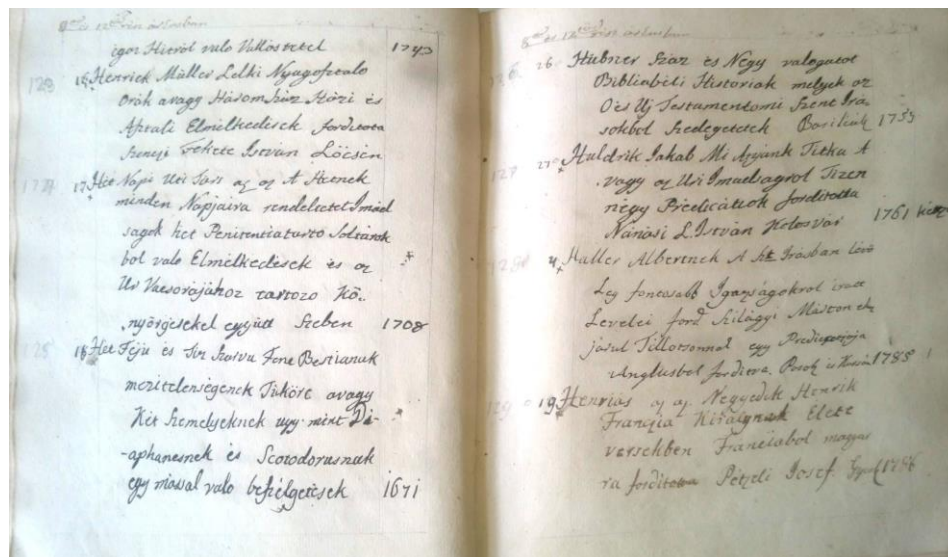 8ad és 12ed rin ástasban
igaz Hitröl valo Vallástétel 1743
123 16 Henrick Müller Lelki Nyugosztalo
Orák avagy Háromszáz Házi és
Asztali Elmélkedések forditotta
Szenczi Fekete István Löcsén
124 17 Hét Napi Uri Társ az az A Hétnek
minden Napjaira rendeltetet Imád
ságok hét Penitentiatarto Soltárok
bol valo Elmélkedések és az
Ur Vacsorájához tartozo Kö-
nyörgésekel együtt Szeben 1708
125 18 Hét Fejü és Tiz Szarvu Fene Bestianak
mezitelenségének Tüköre avagy
Két Személyeknek ugy mint Di-
-aphanesnek és Scotodorusnak
egy mással valo beszélgetések 1671
8ad és 12 rét ástasban
126 26 Hübner Száz és Négy válogatot
Bibliabéli Historiak melyek az
O és Uj Testamentomi Szent Irá
sokbol Szedegetetek Basileák 1754
127 27 Huldrik Jakab Mi Atyánk Titka A
vagy az Uri Imadságrol Tizen
négy Predicátiok forditotta
Nánási L. István Kolosvár 1761
128 4 Haller Albertnek A Sz. Irásban lévö
Leg fontosabb Igazságokrol iratt
Levelei ford Szilágyi Márton
járul Tillotsonnal egy Predicatioja
Anglusbol forditva. Posok és Kassán 1785
129 19 Henriás az az Negyedik Henrik
Francziа Királynak Elete
versekben Francziabol magyar
ra forditotta Pétzeli Josef. Györ 1786